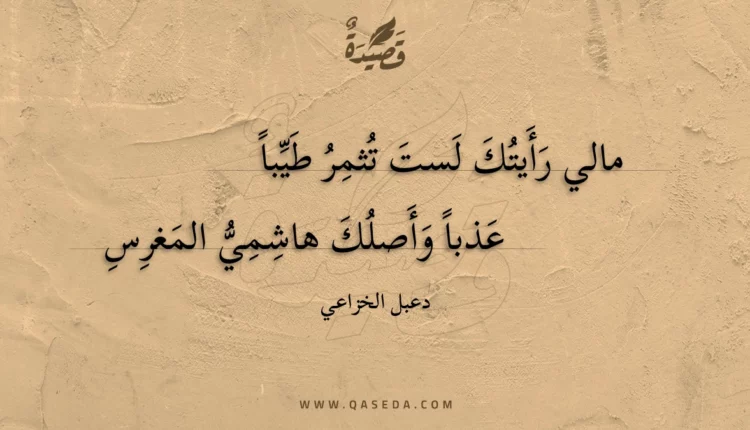 قَصِيدَةٌ
مالي رَأَيتُكَ لَستَ تُثمِرُ طَيِّباً
عَذباً وَأَصلُكَ هاشِمِيُّ المَغرِسِ
دعبل الخزاعي
WWW.QASEDA.COM